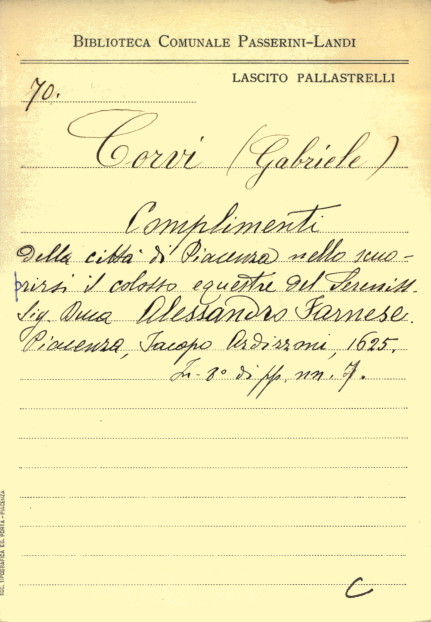 BIBLIOTECA COMUNALE PASSERINI-LANDI
LASCITO PALLASTRELLI
70.
Corvi (Gabriele)
Complimenti
della città di Piacenza nello scuo-
prirsi il colosso equestre del Sereniss.
Sig. Duca Alessandro Farnese.
Piacenza, Jacopo Ardizzoni, 1625.
In-8° di pp. nn. 7.
C
SOC. TIPOGRAFICA ED. PORTA - PIACENZA